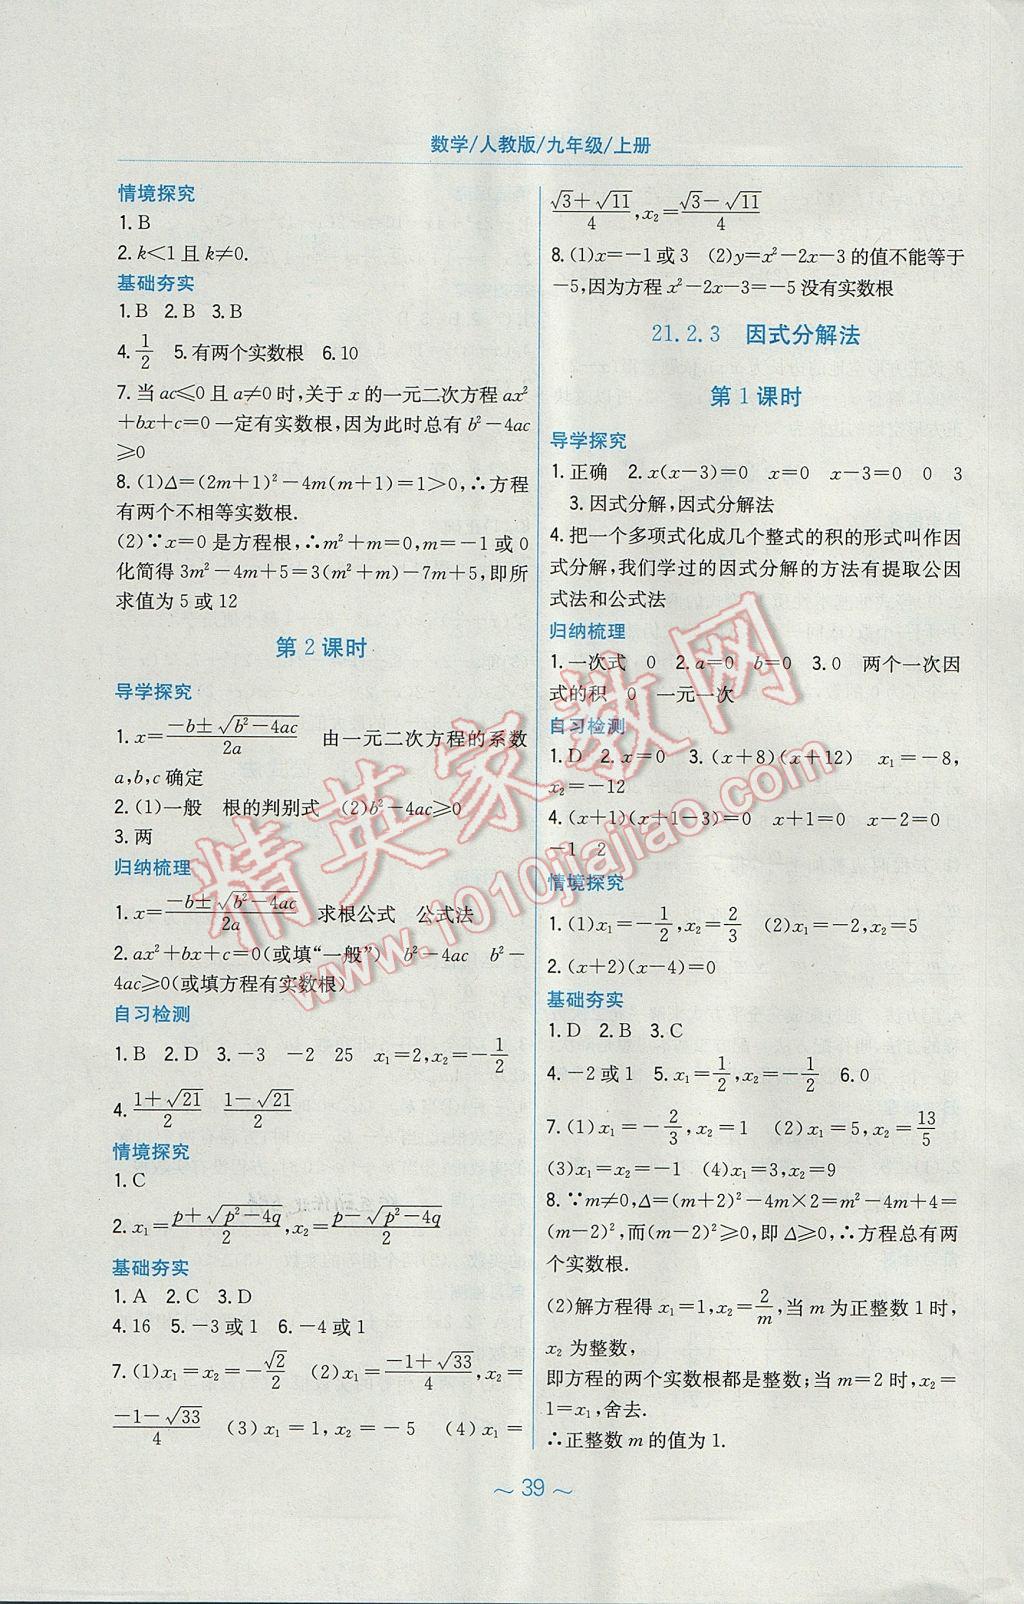 数学/人教版/九年级/上册
情境探究
1. B
2. k<1 且 k≠0.
基础夯实
1. B 2. B 3. B
4. 1/2 5. 有两个实数根 6. 10
7. 当 ac≤0 且 a≠0 时,关于 x 的一元二次方程 ax²
+bx+c=0 一定有实数根,因为此时总有 b²-4ac
≥0
8. (1)Δ=(2m+1)²-4m(m+1)=1>0,∴方程
有两个不相等实数根.
(2)∵x=0 是方程根,∴m²+m=0,m=-1 或 0
化简得 3m²-4m+5=3(m²+m)-7m+5,即所
求值为 5 或 12
第 2 课时
导学探究
1. x=(-b±√(b²-4ac))/2a 由一元二次方程的系数
a,b,c 确定
2. (1)一般 根的判别式 (2)b²-4ac≥0
3. 两
归纳梳理
1. x=(-b±√(b²-4ac))/2a 求根公式 公式法
2. ax²+bx+c=0(或填“一般”) b²-4ac b²-
4ac≥0(或填方程有实数根)
自习检测
1. B 2. D 3. -3 -2 25 x₁=2,x₂=-1/2
4. (1+√21)/2 (1-√21)/2
情境探究
1. C
2. x₁=(p+√(p²-4q))/2,x₂=(p-√(p²-4q))/2
基础夯实
1. A 2. C 3. D
4. 16 5. -3 或 1 6. -4 或 1
7. (1)x₁=x₂=-√2/2 (2)x₁=(-1+√33)/4,x₂=
(-1-√33)/4 (3)x₁=1,x₂=-5 (4)x₁=
(√3+√11)/4,x₂=(√3-√11)/4
8. (1)x=-1 或 3 (2)y=x²-2x-3 的值不能等于
-5,因为方程 x²-2x-3=-5 没有实数根
21.2.3 因式分解法
第 1 课时
导学探究
1. 正确 2. x(x-3)=0 x=0 x-3=0 0 3
3. 因式分解,因式分解法
4. 把一个多项式化成几个整式的积的形式叫作因
式分解,我们学过的因式分解的方法有提取公因
式法和公式法
归纳梳理
1. 一次式 0 2. a=0 b=0 3. 0 两个一次因
式的积 0 一元一次
自习检测
1. D 2. x=0 3. (x+8)(x+12) x₁=-8,
x₂=-12
4. (x+1)(x+1-3)=0 x+1=0 x-2=0
-1 2
情境探究
1. (1)x₁=-1/2,x₂=2/3 (2)x₁=-2,x₂=5
2. (x+2)(x-4)=0
基础夯实
1. D 2. B 3. C
4. -2 或 1 5. x₁=1/2,x₂=-1/2 6. 0
7. (1)x₁=-2/3,x₂=1 (2)x₁=5,x₂=13/5
(3)x₁=x₂=-1 (4)x₁=3,x₂=9
8. ∵m≠0,Δ=(m+2)²-4m×2=m²-4m+4=
(m-2)²,而(m-2)²≥0,即 Δ≥0,∴方程总有两
个实数根.
(2)解方程得 x₁=1,x₂=2/m,当 m 为正整数 1 时,
x₂ 为整数,
即方程的两个实数根都是整数;当 m=2 时,x₂=
1=x₁,舍去.
∴正整数 m 的值为 1.
~ 39 ~
精英家教网
www.1010jiajiao.com